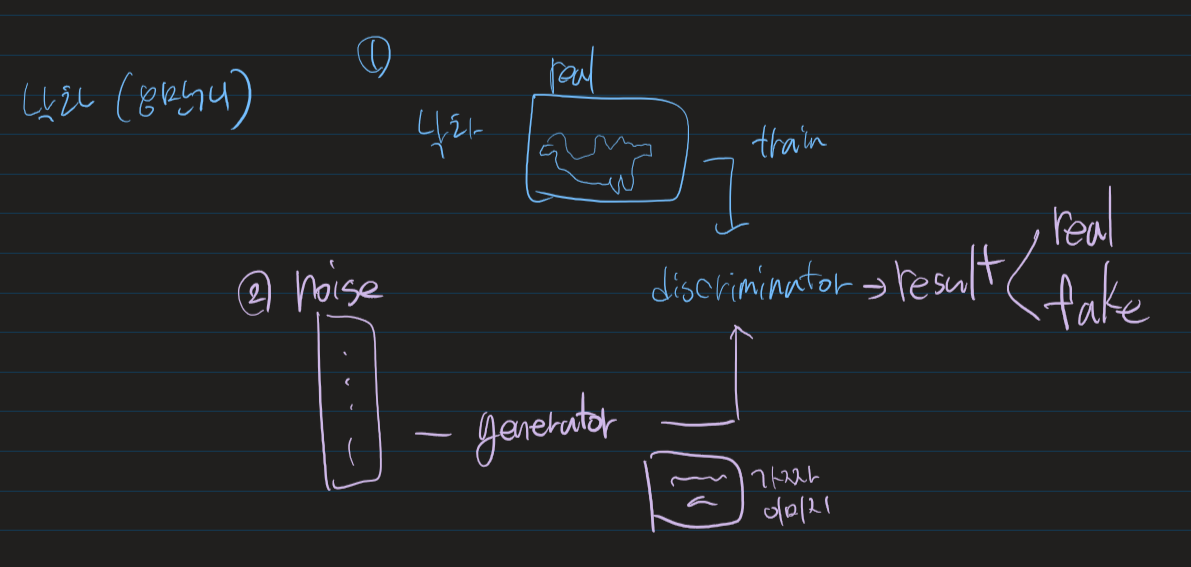 ①
real
train
discriminator → result
real
fake
② noise
— generator
가짜
이미지